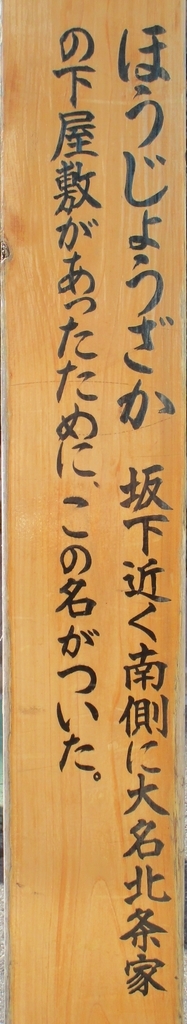 ほうじょうざか 坂下近く南側に大名北条家
の下屋敷があったために、この名がついた。